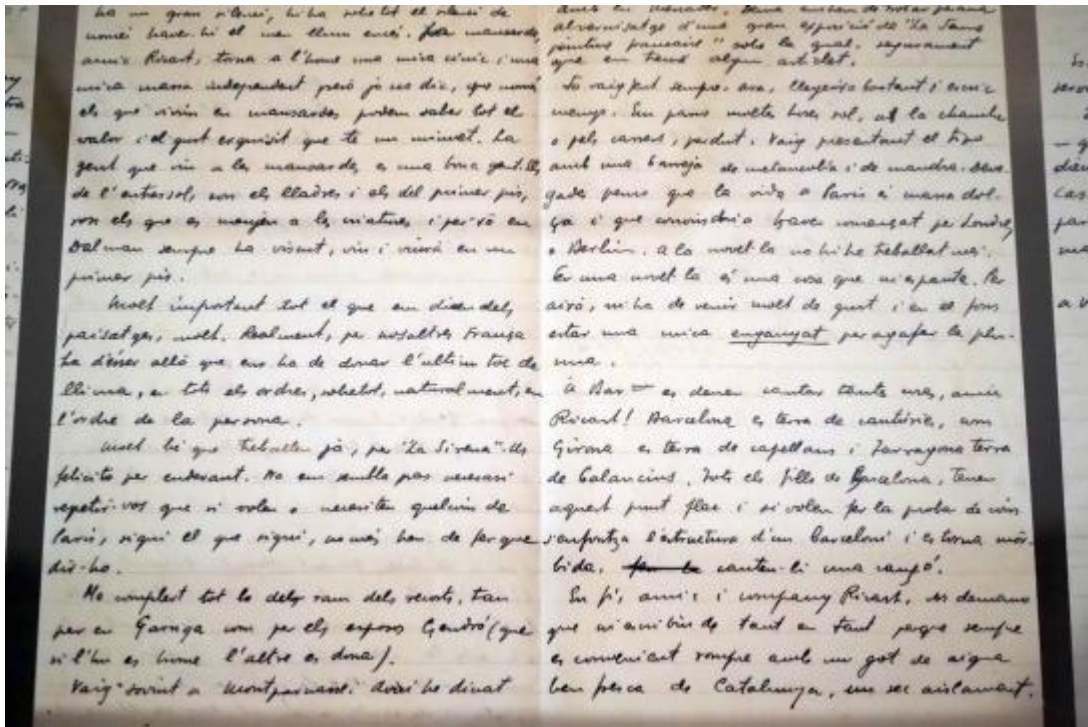 ha un gran silenci, hi ha sobretot el silenci de
només haver-hi el meu llum encès. La mansarda,
amic Ricart, torna a l'home una mica cínic i una
mica massa independent però jo us dic, que només
els que vivim en mansardes podem saber tot el
valor i el gust exquisit que té un minuet. La
gent que viu a les mansardes es una bona gent. Els
de l'entresol, son els lladres i els del primer pis,
son els que es mengen a les criatures i per xò en
Dalmau sempre ha viscut, viu i viurà en un
primer pis.
Molt important tot el que em dieu dels
paisatges, molt. Realment, per nosaltres França
ha d'ésser allò que ens ha de donar l'ultim toc de
llima, en tots els ordres, sobretot, naturalment, en
l'ordre de la persona.
Molt bé que treballeu ja, per "La Sirena". Us
felicito per endavant. No em sembla pas necessari
repetir-vos que si voleu o necesiteu quelcom de
Paris, sigui el que sigui, només heu de fer que
dir-ho.
He complert tot lo dels ram dels recorts, tan
per en Garriga com per els esposos Gendró (que
si l'un es home l'altre es dona).
Vaig sovint a Montparnasse i he dinat
amb en
al vernisatge d'una gran esposició de "La
pintura française" sobre la qual, segurament
que en treuré algun article.
Jo vaig fent sempre. ara, llegeixo bastant i escric
menys. Em passo moltes hores sol, a la chambre
o pels carrers, perdut. Vaig passejant el tipo
amb una barreja de melancolia i de mandra. Deve-
gades penso que la vida a Paris és massa dol-
ça i que convindria haver començat per Londres
o Berlin. a la novel·la no hi he treballat més.
Fer una novel·la és una cosa que m'espanta. Per
això, m'ha de venir molt de gust i en el fons
estar una mica enganyat per agafar la plo-
ma.
A Bar= es deuen cantar tants
Ricart! Barcelona es terra de cantúries, com
Girona es terra de capellans i Tarragona terra
de Tots els fills de Barcelona, tenen
aquest punt flac i si voleu fer la proba de com
s'enfontza l'estructura d'un barceloní i es torna mòr-
bida, canteu-li una cançó.
En fi, amic i company Ricart, us demano
que m'escribiu de tant en tant perque sempre
es convenient rompre amb un got de aigua
ben fresca de Catalunya, un sec aislament.